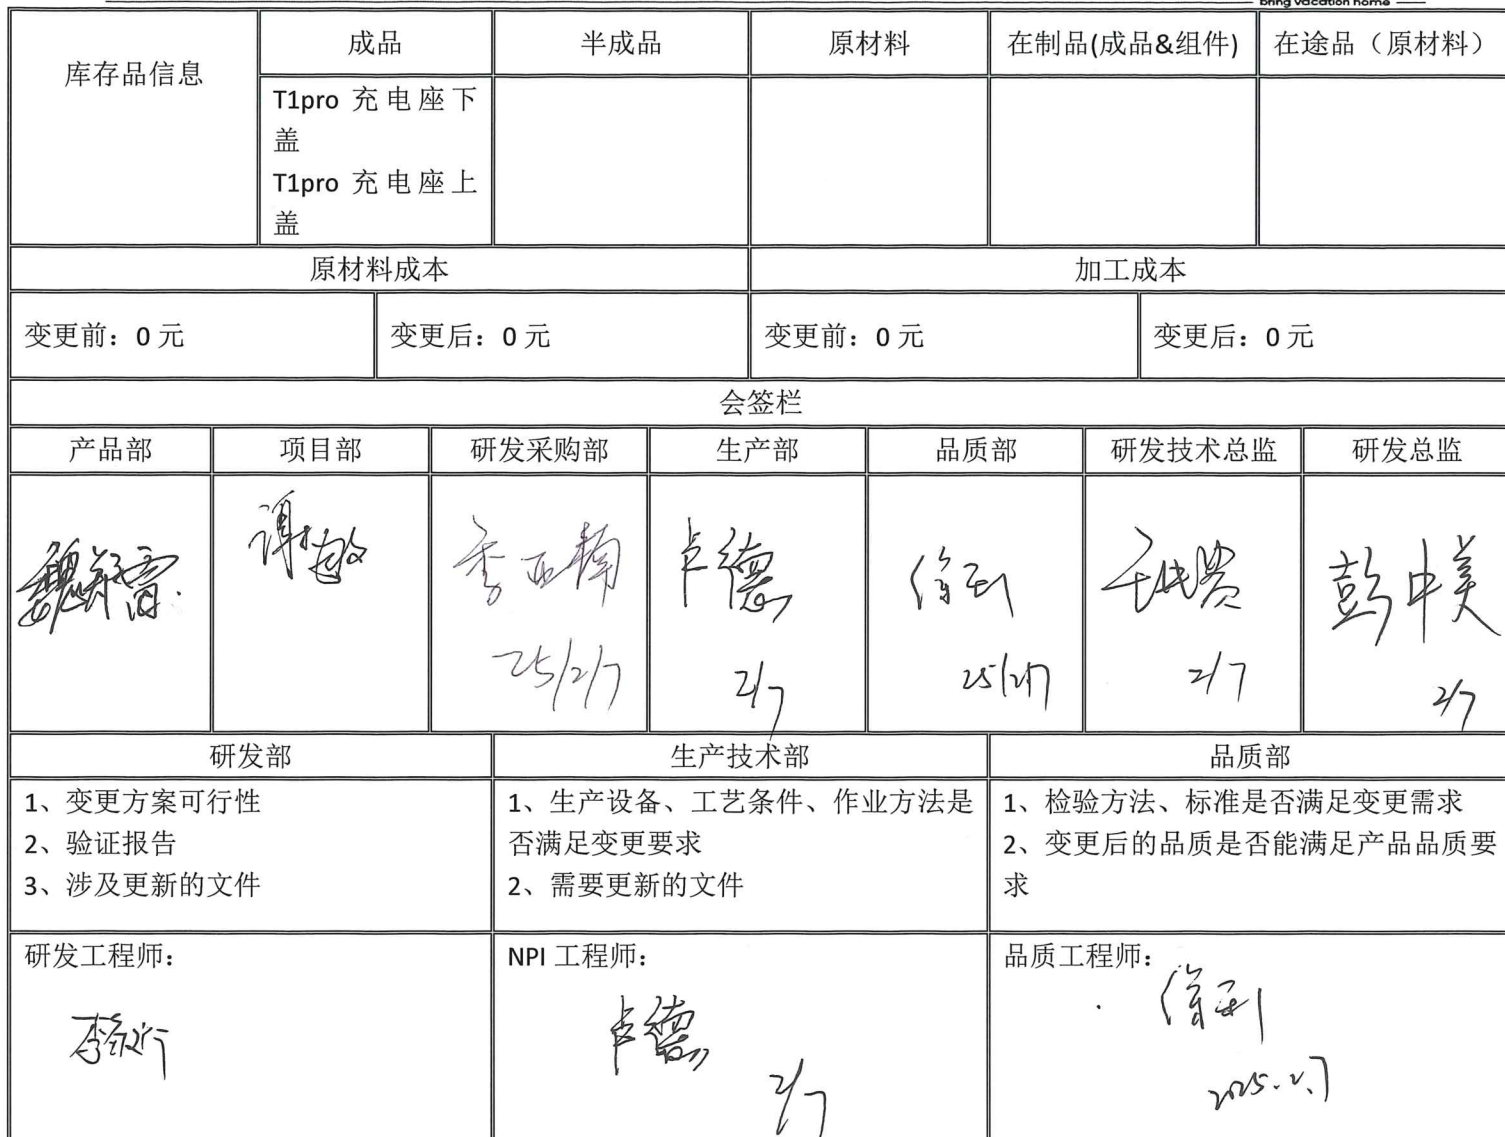 bring vacation home
库存品信息
成品
半成品
原材料
在制品(成品&组件)
在途品（原材料）
T1pro 充电座下
盖
T1pro 充电座上
盖
原材料成本
加工成本
变更前：0 元
变更后：0 元
变更前：0 元
变更后：0 元
会签栏
产品部
项目部
研发采购部
生产部
品质部
研发技术总监
研发总监
谢敏
李亚楠
卢德
彭中美
25/2/7
2/7
25/2/7
2/7
2/7
研发部
生产技术部
品质部
1、变更方案可行性
2、验证报告
3、涉及更新的文件
1、生产设备、工艺条件、作业方法是
否满足变更要求
2、需要更新的文件
1、检验方法、标准是否满足变更需求
2、变更后的品质是否能满足产品品质要
求
研发工程师：
NPI 工程师：
卢德
2/7
品质工程师：
2025.2.7